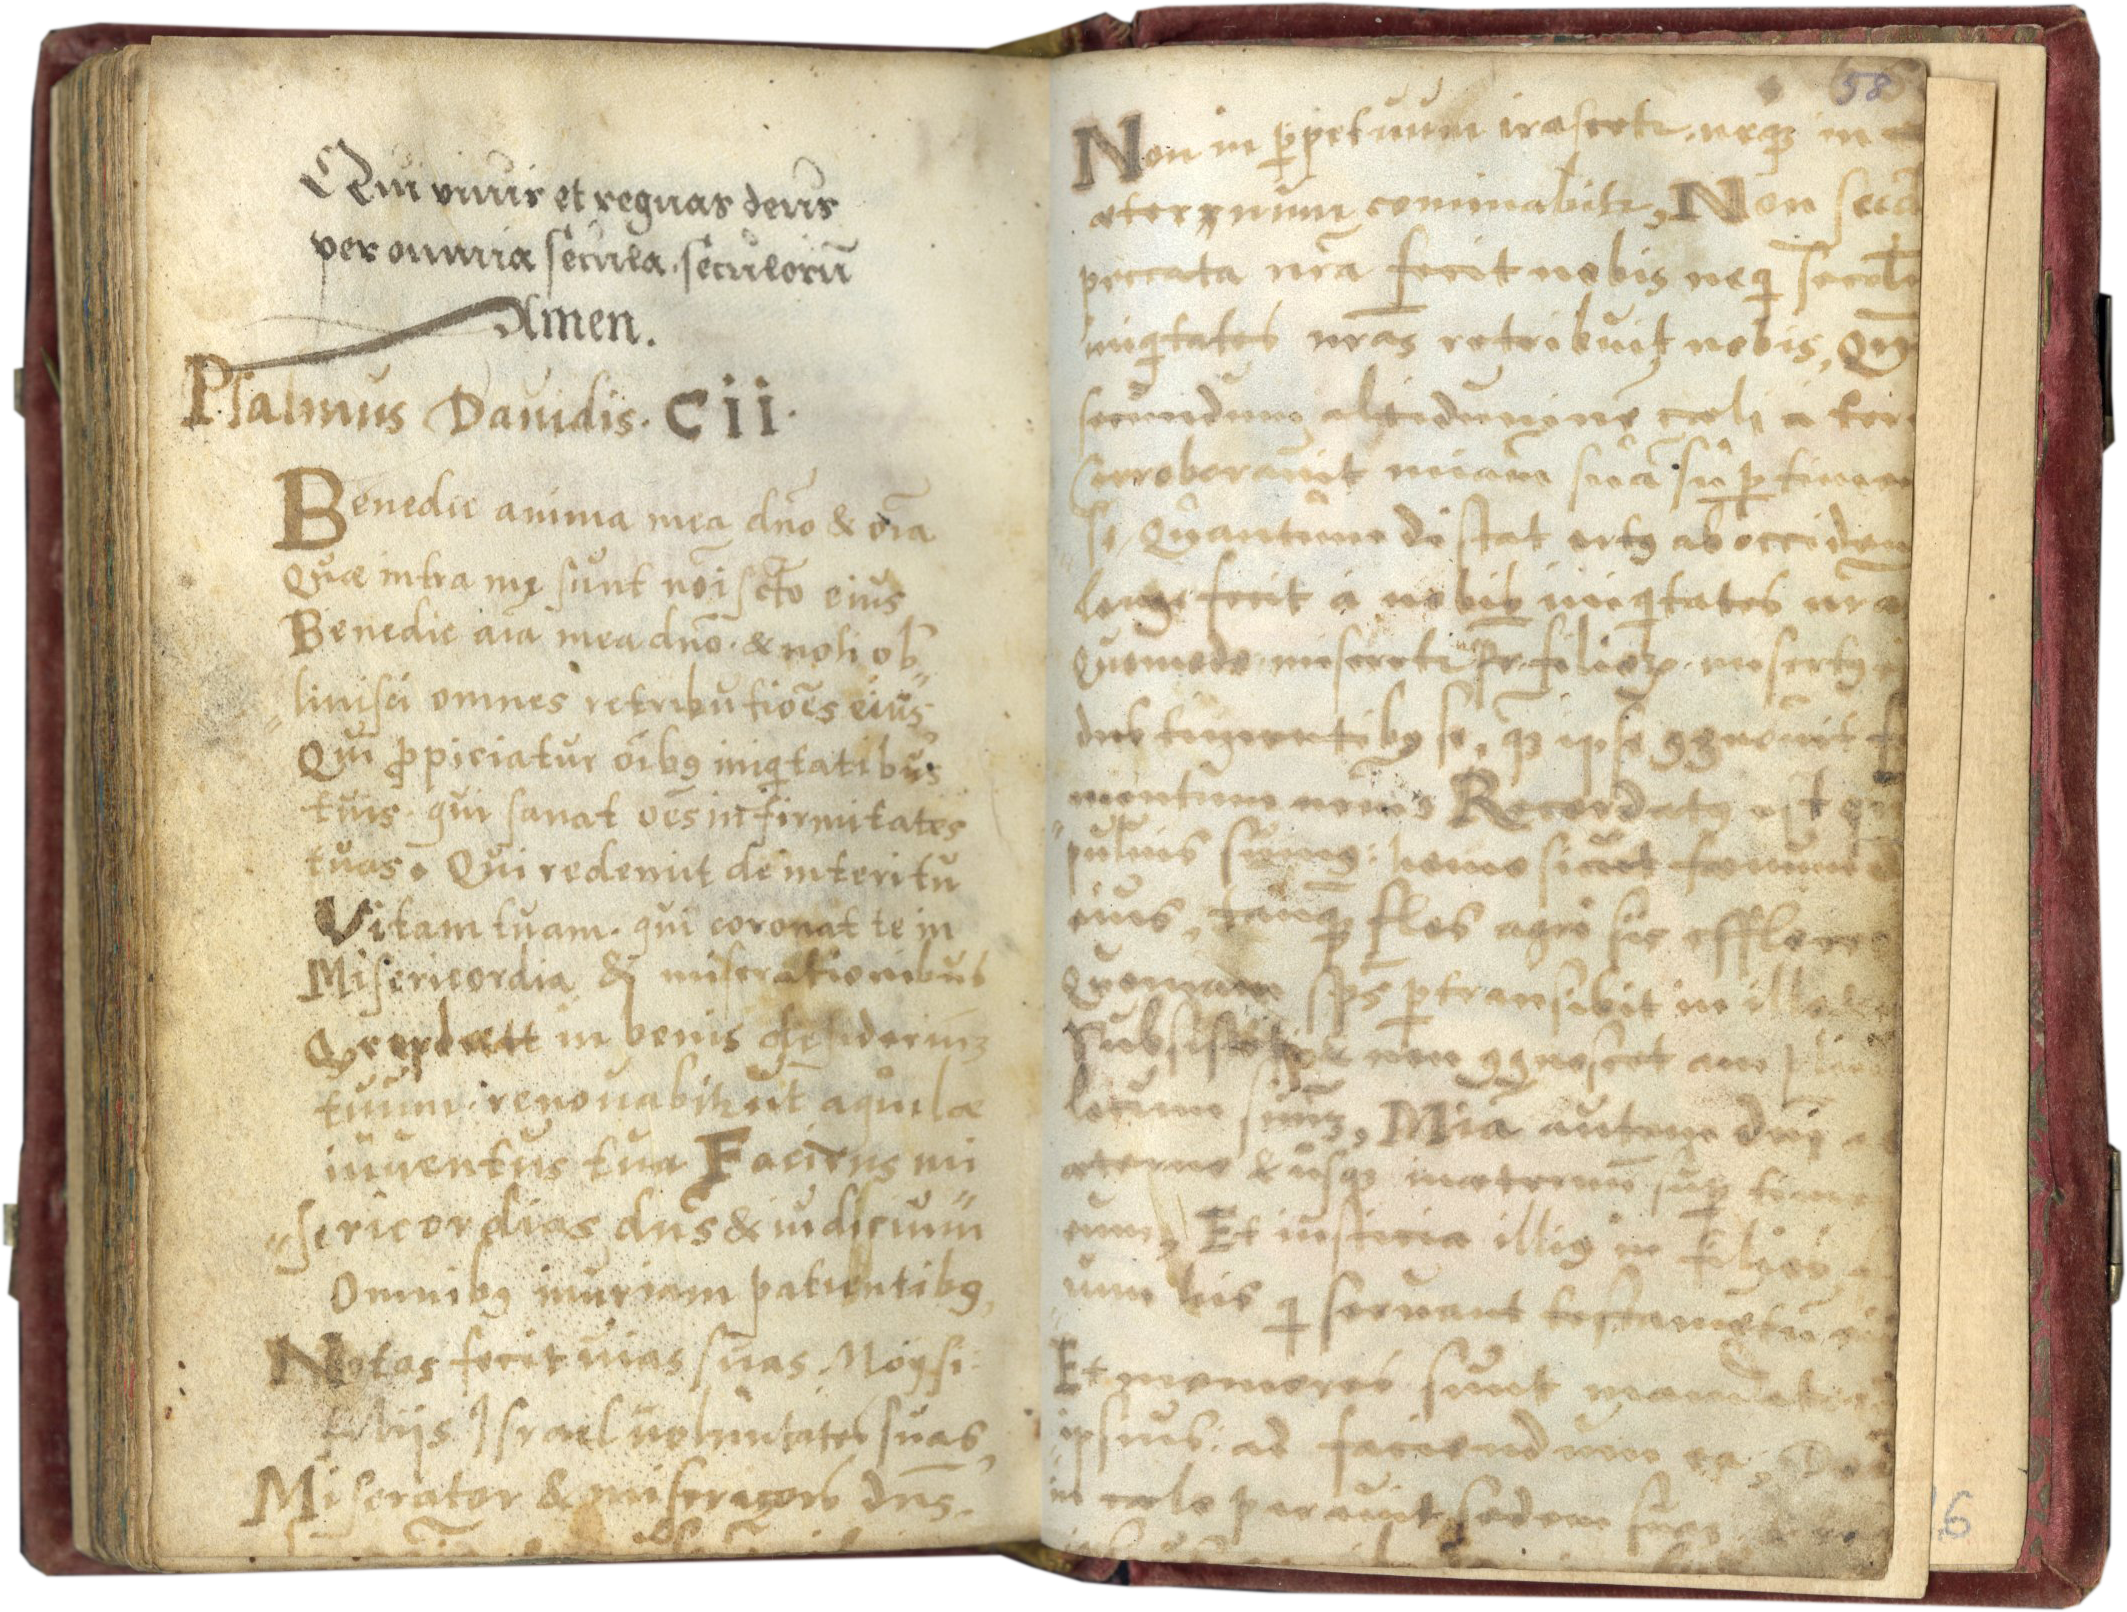 Qui viuis et regnas deus
per omnia secula. seculorū
Amen.
Psalmus Dauidis. Cii.
Benedic anima mea dn̄o & oīa
Quæ intra me sunt noī scto eius
Benedic aīa mea dn̄o. & noli ob„
„liuisci omnes retributiōes eius
Qui ꝓpiciatur oībꝰ iniqͥtatibus
tuis. qui sanat oēs infirmitates
tuas. Qui redemit de interitu
Vitam tuam. qui coronat te in
Misericordia & miserationibus
in bonis desideriuꝫ
tuum. renouabitr ut aquilæ
iuuentus tua Faciens mi
„sericordias dn̄s & iudicium
Omnibꝰ iniuriam patientibꝰ,
Notas fecit uias suas Moysi.
filijs Israel uoluntates suas,
Miserator & misericors dn̄s.
58
Non in ꝑpetuum irascetr. neqꝫ in
æternum cominabitr, Non secū
peccata nrā fecit nobis neqͥ
iniqͥtates nrās retribuit nobis, Qm̄
secundum altidumine cæli a ter
Corroborauit mīam suā suꝑ timen
se. Quantum distat ortꝰ ab occiden
longe fecit a nobis iniqͥtates nrā
Quomodo miseretr pr̄ filioꝝ. misertꝰ
dns timentibꝰ se, qꝫ ipse ꝯgnouit
Recordatꝰ est
puluis sumꝰ. homo sicut fœnum
eius, tanqꝫ flos agri sic efflore
Quoniam sp̄s ꝑtransibit in illo
Subsistet & non ꝯgnoscet ampli
locum suuꝫ, Mīa autem dnī
æterno & usqꝫ inæternū suꝑ time
eum, Et iusticia illiꝰ in filios
his qͥ seruant testamētū
Et memores sunt mandatis
ipsius. ad faciendum ea,
in cælo parauit sedem suaꝫ
16